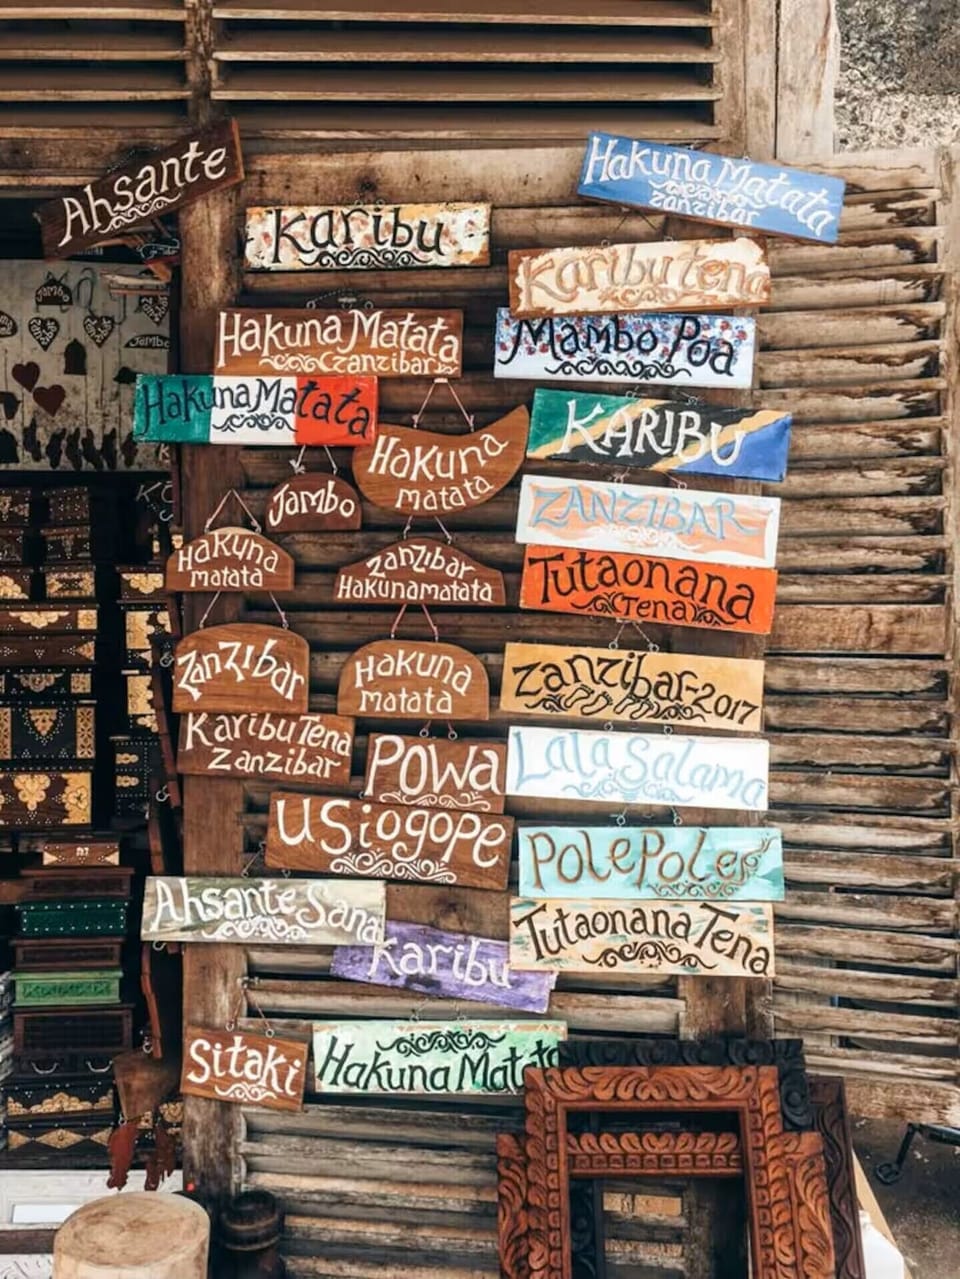 Ahsante
Hakuna Matata
zanzibar
Karibu
Karibu tena
Hakuna Matata
zanzibar
Mambo Poa
Hakuna Matata
KARIBU
Hakuna
matata
Jambo
ZANZIBAR
Hakuna
matata
zanzibar
Hakunamatata
Tutaonana
(Tena)
ZanZibar
Hakuna
matata
Zanzibar-2017
Karibu Tena
Zanzibar
POWA
Lala Salama
USiogope
PolePole
Ahsante Sana
Tutaonana Tena
Karibu
Sitaki
Hakuna Matata
Jambo
Jambo